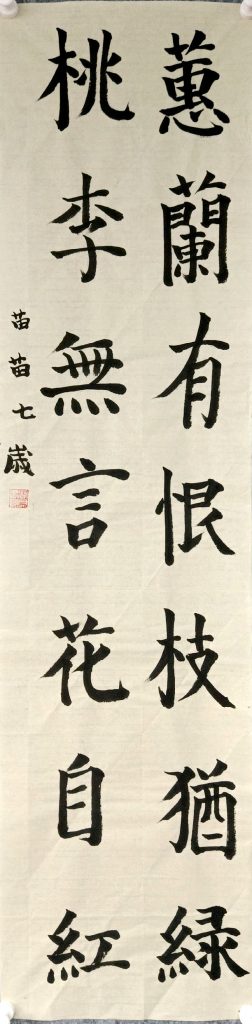 蕙蘭有恨枝猶緑
桃李無言花自紅
苗苗七歲